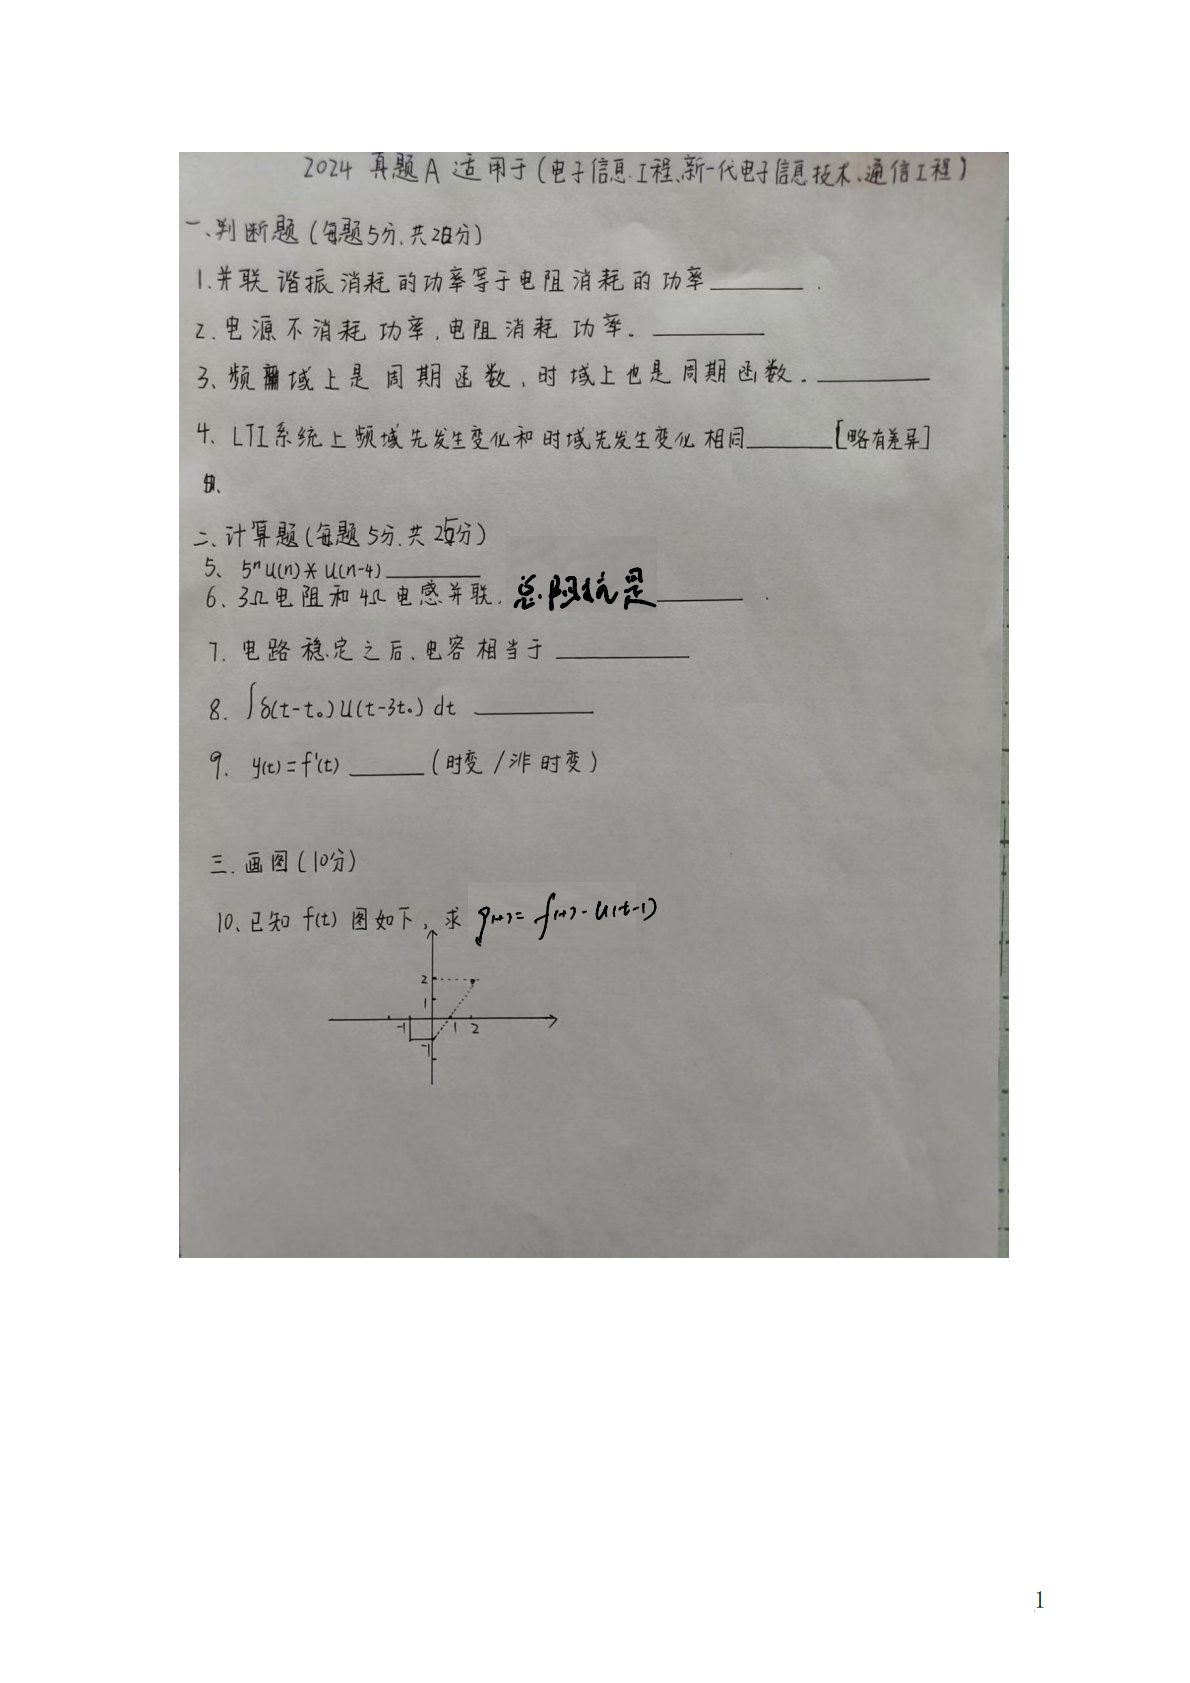 2024 真题A 适用于(电子信息工程、新一代电子信息技术、通信工程)
一、判断题(每题5分,共20分)
1.并联谐振消耗的功率等于电阻消耗的功率______.
2.电源不消耗功率,电阻消耗功率。______
3、频域上是周期函数,时域上也是周期函数。______
4、LTI系统上频域先发生变化和时域先发生变化相同______[略有差异]
二、计算题(每题5分,共25分)
5、5ⁿu(n)*u(n-4)______
6、3Ω电阻和4Ω电感并联,总阻抗是______.
7.电路稳定之后,电容相当于______
8.∫δ(t-t₀)u(t-3t₀)dt ______
9. y(t)=f'(t) ______(时变/非时变)
三.画图(10分)
10、已知f(t)图如下,求 g(t)=f(t)·u(t-1)
2
1
-1 1 2
-1
1